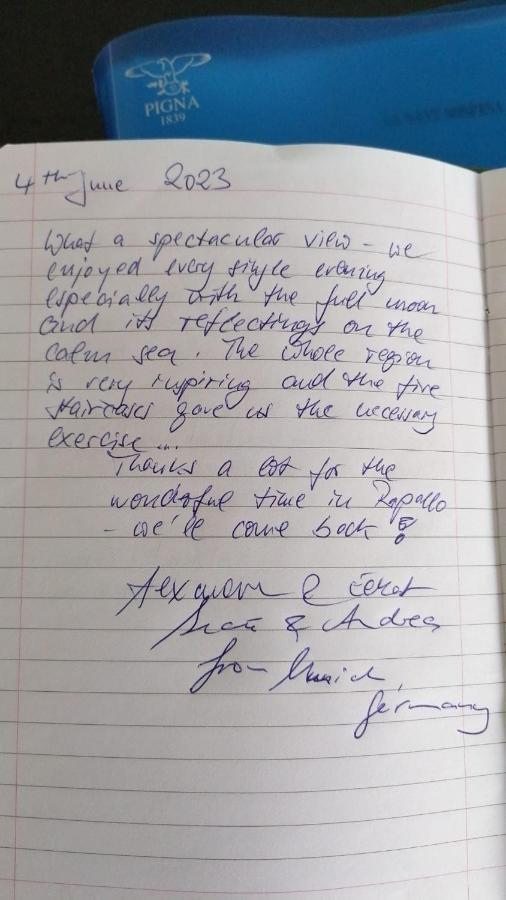 PIGNA
1839
4th June 2023
What a spectacular view - we
enjoyed every single evening
especially with the full moon
and its reflectings on the
calm sea. The whole region
is very inspiring and the five
staircases gave us the necessary
exercise...
Thanks a lot for the
wonderful time in Rapallo
- we'll come back!
&
& Andreas
from Munich,
Germany